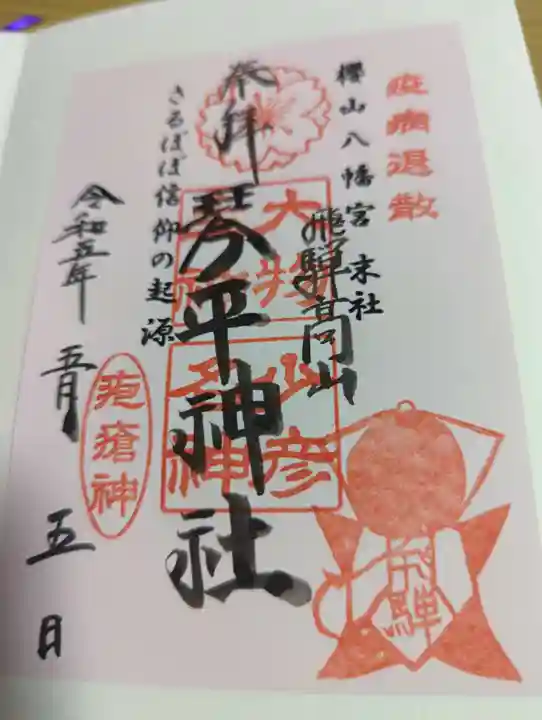 疫病退散
櫻山八幡宮 末社
飛騨高山
奉拝
琴平神社
大物主神
少彦名神
さるぼぼ信仰の起源
疱瘡神
令和五年 五月 五日
飛騨